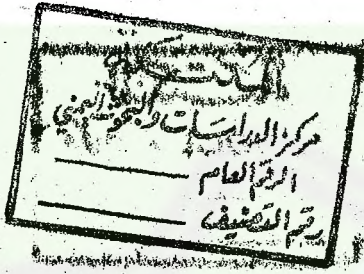 المكتبة
مركز الدراسات والبحوث اليمني
الرقم العام
رقم التصنيف